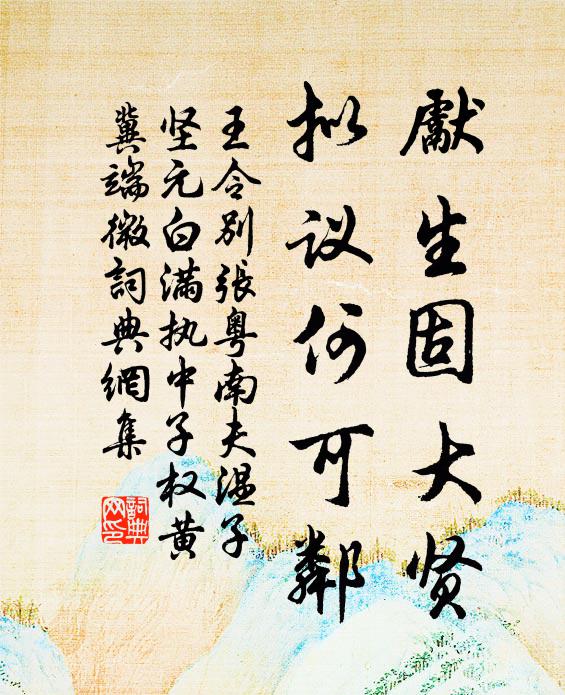 獻生固大贤
拟议何可鄰
王令别張粤南夫温子
坚元白满执中子权黄
冀端微詞典網集
詞典